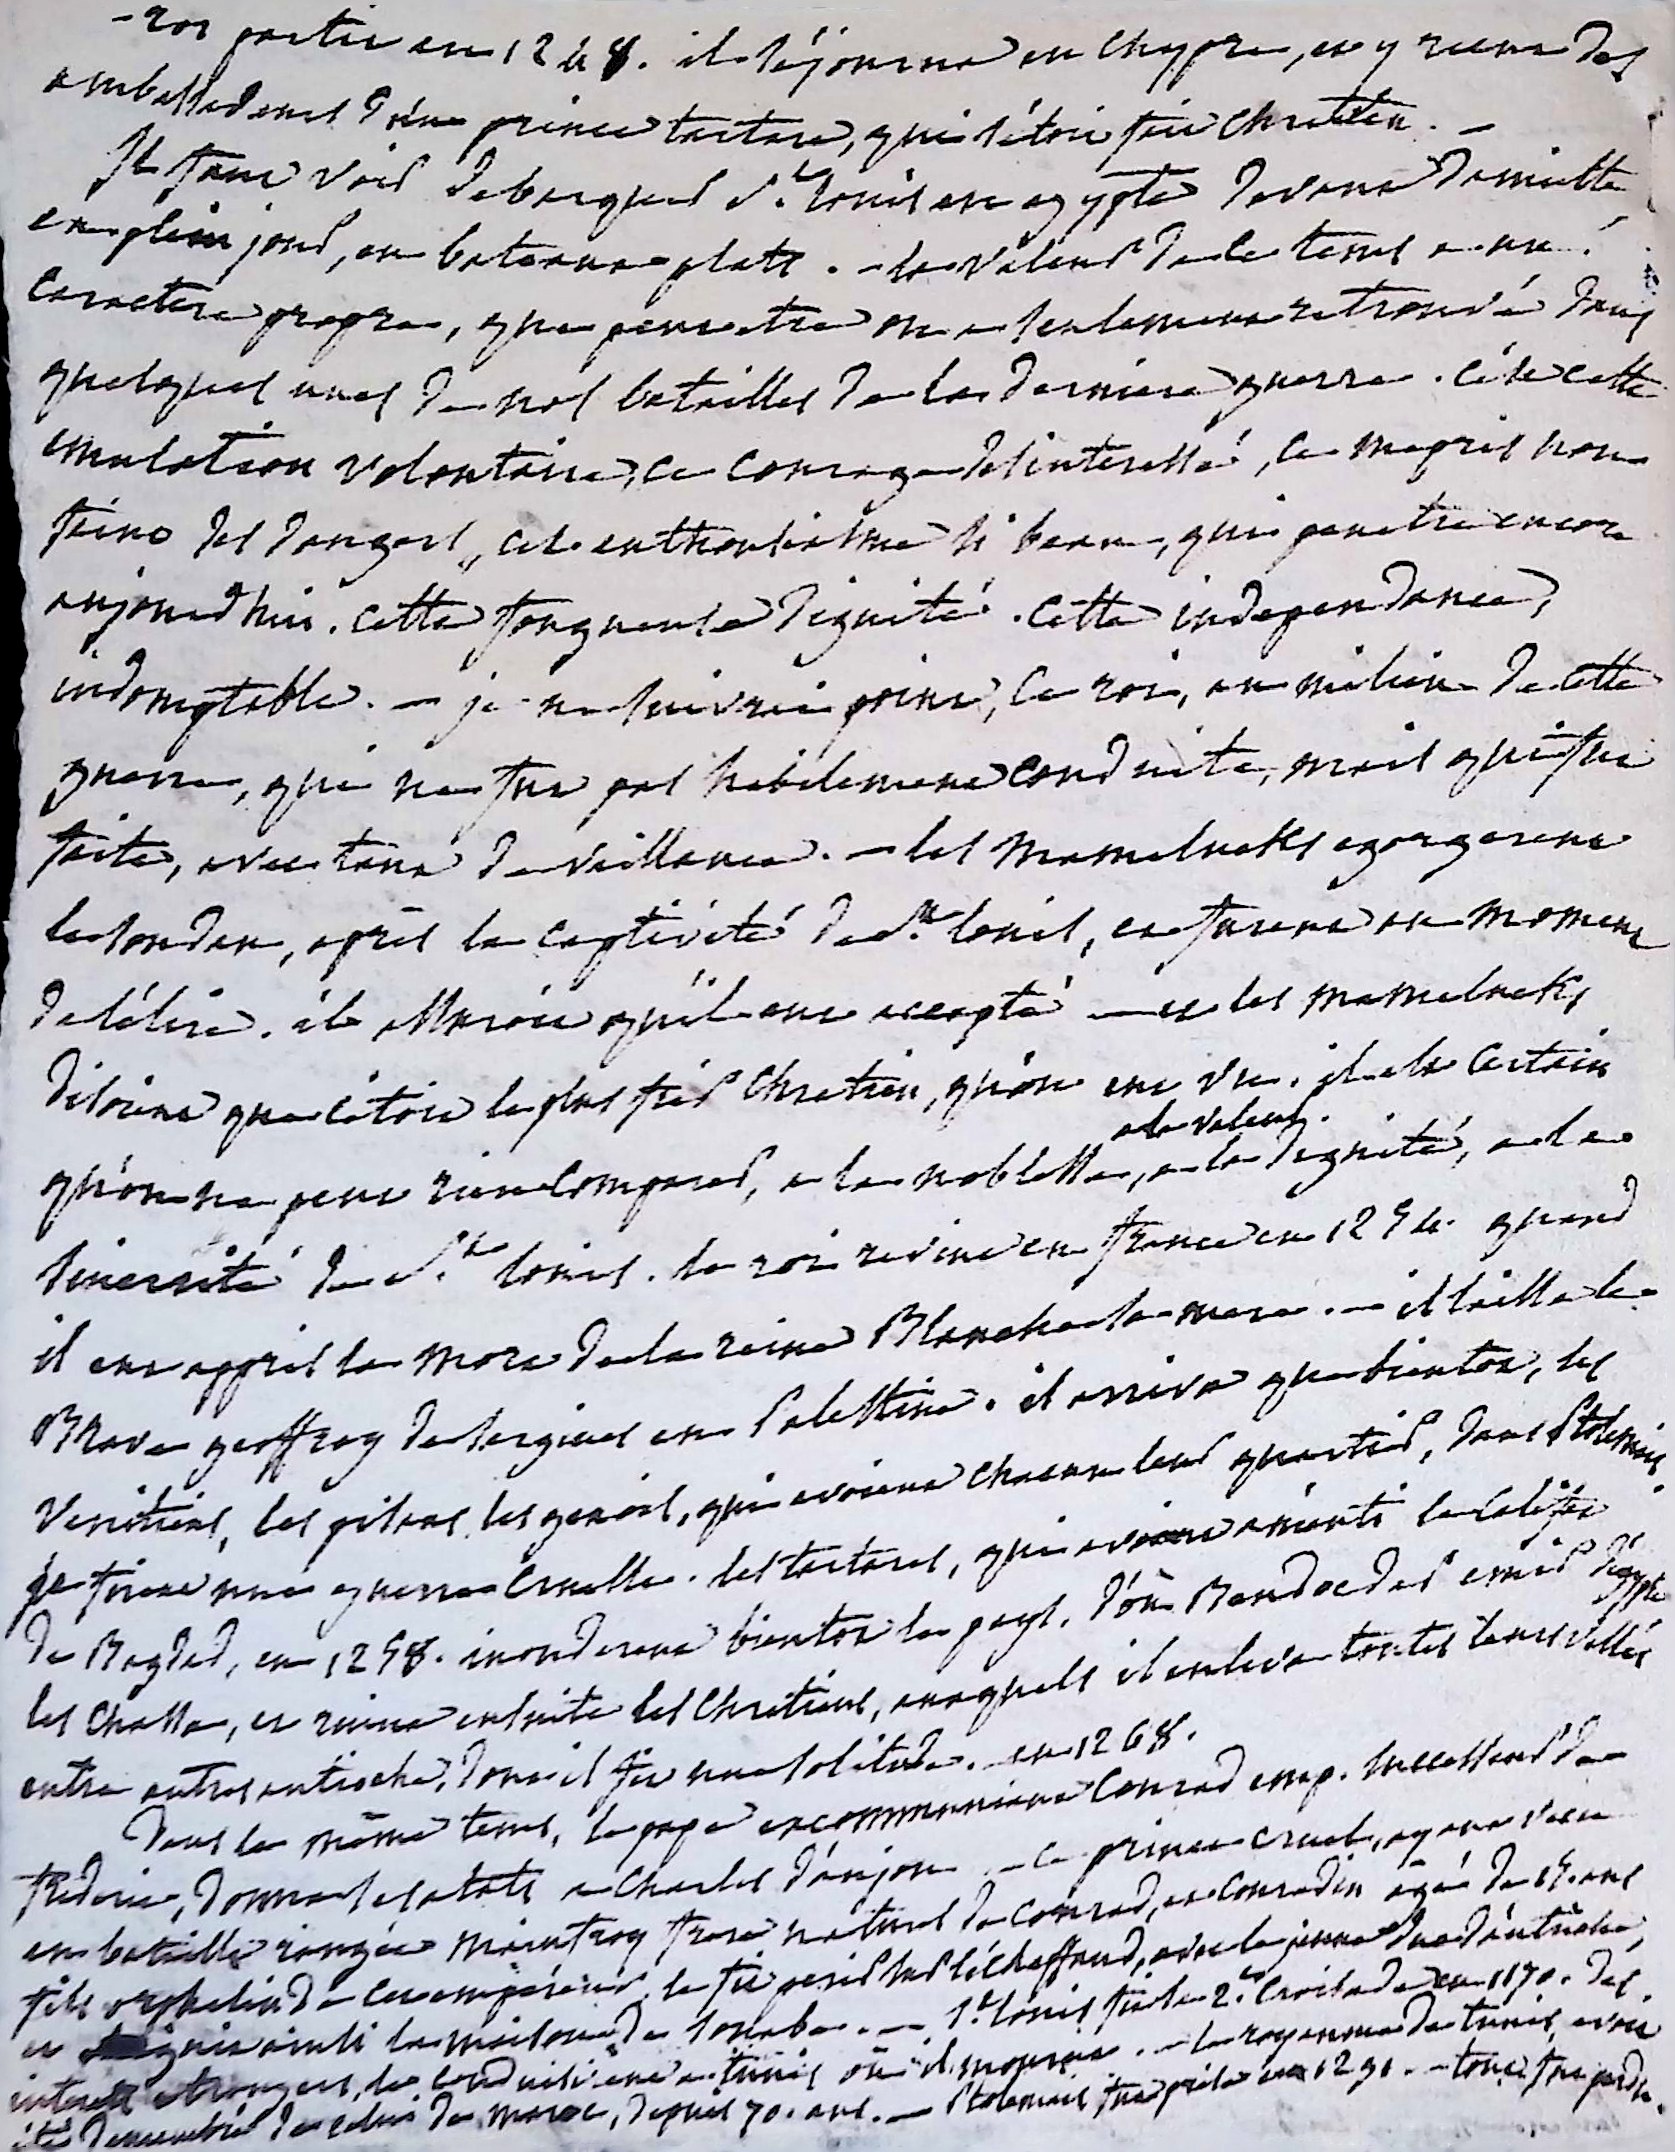 - roi partit en 1248. il séjourna en Chypre, et y recut des
ambassadeurs d'un prince tartare, qui s'étoit fait Chretien. -
Il faut voir debarquer St. Louis en egypte devant Damiette
en plein jour, en bateaux plats. - la valeur de ce tems a un
caractere propre, que peut etre on a seulement retrouvé dans
quelques unes de nos batailles de la derniere guerre. c'est cette
emulation volontaire, ce courage desinteressé, ce mepris hau-
tain des dangers, cet enthousiasme si beau, qui penetre encore
aujourd'hui. cette fougueuse dignité. cette independance,
indomptable. - je ne suivrai point, ce roi, au milieu de cette
guerre, qui ne fut pas habilement conduite, mais qui fut
faite, avec tant de vaillance. - les Mameluaks egorgerent
le soudan, après la captivité de St. Louis, et furent au moment
de l'élire. il assuroit qu'il eut accepté - et les mameluaks
disoient que c'étoit le plus fier Chretien, qu'on eut vu. il est certain
qu'on ne peut rien comparer, a la noblesse, a la valeur. a la dignité, a la
sincerité de St. Louis. le roi revint en france en 1254. quand
il eut appris la mort de la reine Blanche sa mere. - il laissa le
Brave geoffroy de sergines en Palestine. il arriva que bientot, les
Venitiens, les pisans, les genois, qui avoient chacun leur quartier, dans Ptolemais
se firent une guerre cruelle. les tartares, qui avoient anéanti le Calife
de Bagdad, en 1258. inonderent bientot le pays. d'où Bondocdar emir d'egypte
les chassa, et ruina ensuite les Chretiens, auxquels il enleva toutes leurs villes
entre autres antioche, dont il fit une solitude. en 1268.
Dans le même tems, le pape excommuniant Conrad emp. successeur de
frederic, donna ses etats a Charles d'anjou - ce prince cruel, ayant vaincu
en bataille rangée Mainfroy frere naturel de Conrad, et Conradin agé de 15. ans
fils orphelin de cet empereur, le fit perir sur l'échaffaud, avec le jeune duc d'autriche,
et ainsi la maison de souabe. - St. Louis fit la 2e. Croisade en 1170. des
interets etrangers, le conduisirent a tunis où il mourut. - le royaume de tunis, avoit
été demembré de celui de maroc, depuis 70. ans. - Ptolemais fut prise en 1291. - tout fut perdu.